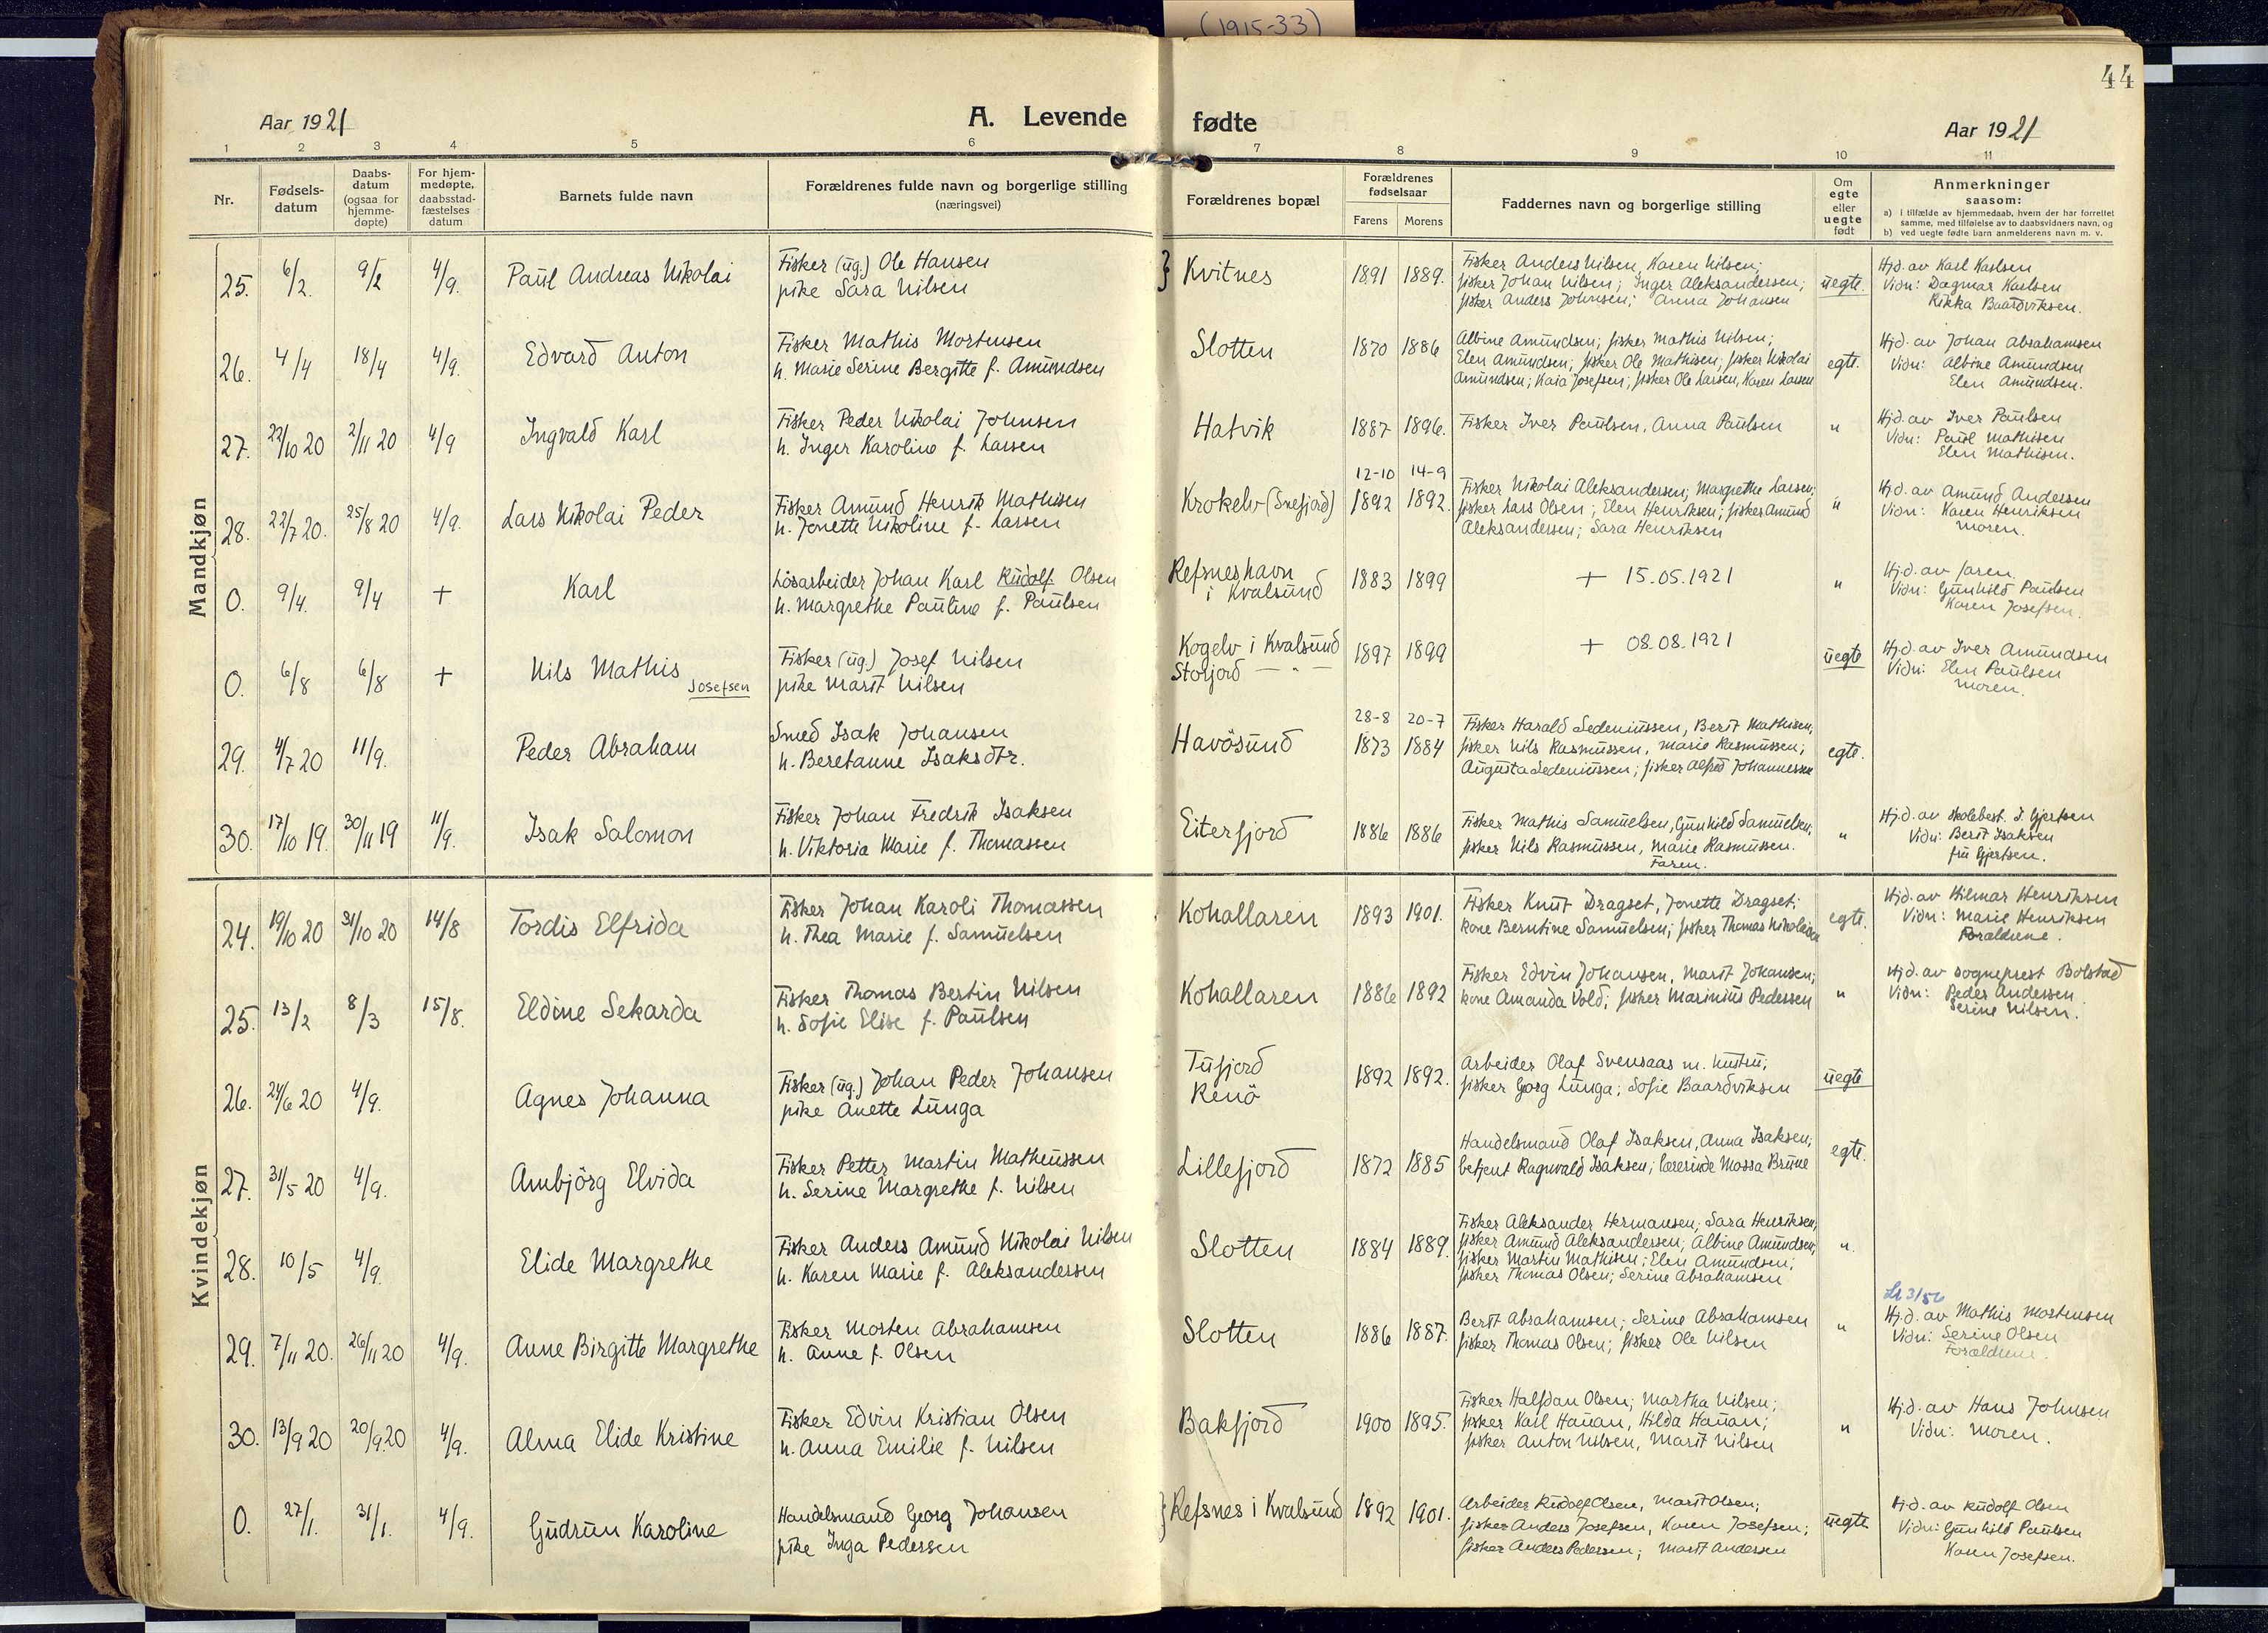 (1915-33)
44
Aar 1921
A. Levende fødte
Aar 1921
1 2 3 4 5 6 7 8 9 10 11
Nr.
Fødsels-
datum
Daabs-
datum
(ogsaa for
hjemme-
døpte)
For hjem-
medøpte,
daabsstad-
fæstelses
datum
Barnets fulde navn
Forældrenes fulde navn og borgerlige stilling
(næringsvei)
Forældrenes bopæl
Forældrenes
fødselsaar
Farens Morens
Faddernes navn og borgerlige stilling
Om
egte
eller
uegte
født
Anmerkninger
saasom:
a) i tilfælde av hjemmedaab, hvem der har forrettet
samme, med tilføielse av to daabsvidners navn, og
b) ved uegte fødte barn anmelderens navn m. v.
Mandkjøn
25. 6/2. 9/2 4/9. Paul Andreas Nikolai
Fisker (ug.) Ole Hansen
pike Sara Nilsen
Kvitnes 1891 1889.
Fisker Anders Nilsen, Karen Nilsen;
fisker Johan Nilsen; Inger Aleksandersen;
fisker Anders Johnsen; Anna Johansen
uegte.
Hjd. av Karl Karlsen
Vidn: Dagmar Karlsen
Rikka Baardviksen.
26. 4/4 18/4 4/9. Edvard Anton
Fisker Mathis Mortensen
h. Marie Serine Bergitte f. Amundsen
Slotten 1870 1886
Albine Amundsen; fisker Mathis Nilsen;
Elen Amundsen; fisker Ole Mathisen; fisker Nikolai
Amundsen; Kaia Josefsen; fisker Ole Larsen, Karen Larsen
egte.
Hjd. av Johan Abrahamsen
Vidn: Albine Amundsen
Elen Amundsen.
27. 22/10 20 2/11 20 4/9 Ingvald Karl
Fisker Peder Nikolai Johnsen
h. Inger Karoline f. Larsen
Hatvik 1887 1896.
Fisker Iver Paulsen, Anna Paulsen
"
Hjd. av Iver Paulsen
Vidn: Paul Mathisen
Elen Mathisen.
28. 22/7 20. 25/8 20 4/9. Lars Nikolai Peder
Fisker Amund Henrik Mathisen
h. Jonette Nikoline f. Larsen
Krokelv (Snefjord) 12-10 1892 14-9 1892.
Fisker Nikolai Aleksandersen; Margrethe Larsen;
fisker Lars Olsen; Elen Henriksen; fisker Amund
Aleksandersen; Sara Henriksen
"
Hj.d. av Amund Andersen
Vidn: Karen Henriksen
Moren.
0. 9/4. 9/4 + Karl
Lösarbeider Johan Karl Rudolf Olsen
h. Margrethe Pauline f. Paulsen
Refsneshavn
i Kvalsund
1883 1899
+ 15.05.1921
"
Hj.d. av faren.
Vidn: Gunhild Paulsen
Karen Josefsen.
0. 6/8 6/8 + Nils Mathis
Josefsen
Fisker (ug.) Josef Nilsen
pike Marit Nilsen
Kogelv i Kvalsund
Storjord — " —
1897 1899
+ 08.08.1921
uegte
Hj.d. av Iver Amundsen
Vidn: Elen Paulsen
Moren.
29. 4/7 20 11/9. Peder Abraham
Smed Isak Johansen
h. Beretanne Isaksdtr.
Havösund 28-8 1873 20-7 1884
Fisker Harald Sedeniussen, Berit Mathisen,
fisker Nils Rasmussen, Marie Rasmussen;
Augusta Sedeniussen; fisker Alfred Johannessen
egte.
30. 17/10 19. 30/11 19 11/9. Isak Salomon
Fisker Johan Fredrik Isaksen
h. Viktoria Marie f. Thomassen
Eiterfjord 1886 1886
Fisker Mathis Samuelsen, Gunhild Samuelsen;
fisker Nils Rasmussen, Marie Rasmussen.
Faren.
"
Hj.d. av skolebest. I. Gjertsen
Vidn: Berit Isaksen
fru Gjertsen.
Kvindekjøn
24. 19/10 20 31/10 20 14/8 Tordis Elfrida
Fisker Johan Karoli Thomassen
h. Thea Marie f. Samuelsen
Kohallaren 1893 1901.
Fisker Knut Dragset, Jonette Dragset;
kone Berntine Samuelsen; fisker Thomas Nikolaisen
egte.
Hj.d. av Hilmar Henriksen
Vidn: Marie Henriksen
Forældrene.
25. 13/2 8/3 15/8. Eldine Sekarda
Fisker Thomas Bertin Nilsen
h. Sofie Elise f. Paulsen
Kohallaren 1886 1892
Fisker Edvin Johansen, Marit Johansen;
kone Amanda Vold; fisker Marinius Pedersen
"
Hj.d. av sogneprest Bolstad
Vidn: Peder Andersen.
Serine Nilsen.
26. 24/6 20 4/9. Agnes Johanna
Fisker (ug.) Johan Peder Johansen
pike Anette Lunga
Tufjord
Renö
1892 1892.
Arbeider Olaf Svensaas m. hustru;
fisker Gorg Lunga; Sofie Baardviksen
uegte
27. 31/5 20 4/9. Arnbjörg Elvida
Fisker Petter Martin Matheussen
h. Serine Margrethe f. Nilsen
Lillefjord 1872 1885
Handelsmand Olaf Isaksen, Anna Isaksen;
betjent Ragnvald Isaksen; lærerinde Mossa Brune
egte.
28. 10/5 4/9. Elide Margrethe
Fisker Anders Amund Nikolai Nilsen
h. Karen Marie f. Aleksandersen
Slotten 1884 1889.
Fisker Aleksander Hermansen; Sara Henriksen;
fisker Amund Aleksandersen; Albine Amundsen;
fisker Martin Mathisen; Elen Amundsen;
fisker Thomas Olsen; Serine Abrahamsen
".
29. 7/11 20. 26/11 20 4/9. Anne Birgitte Margrethe
Fisker Morten Abrahamsen
h. Anne f. Olsen
Slotten 1886 1887.
Berit Abrahamsen; Serine Abrahamsen
fisker Thomas Olsen; fisker Ole Nilsen
"
3/56
Hj.d. av Mathis Mortensen
Vidn: Serine Olsen
Forældrene.
30. 13/9 20 20/9.20 4/9. Alma Elide Kristine
Fisker Edvin Kristian Olsen
h. Anna Emilie f. Nilsen
Bakfjord 1900 1895.
Fisker Halfdan Olsen; Martha Nilsen;
fisker Karl Hauan, Hilda Hauan;
fisker Anton Nilsen, Marit Nilsen
"
Hj.d. av Hans Johnsen
Vidn: Moren.
0. 27/1. 31/1. 4/9. Gudrun Karoline
Handelsmand Georg Johansen
pike Inga Pedersen
Refsnes i Kvalsund 1892 1901.
Arbeider Rudolf Olsen, Marit Olsen;
fisker Anders Josefsen, Karen Josefsen;
fisker Anders Pedersen; Marit Andersen
uegte
Hj.d. av Rudolf Olsen
Vidn: Gunhild Paulsen
Karen Josefsen.